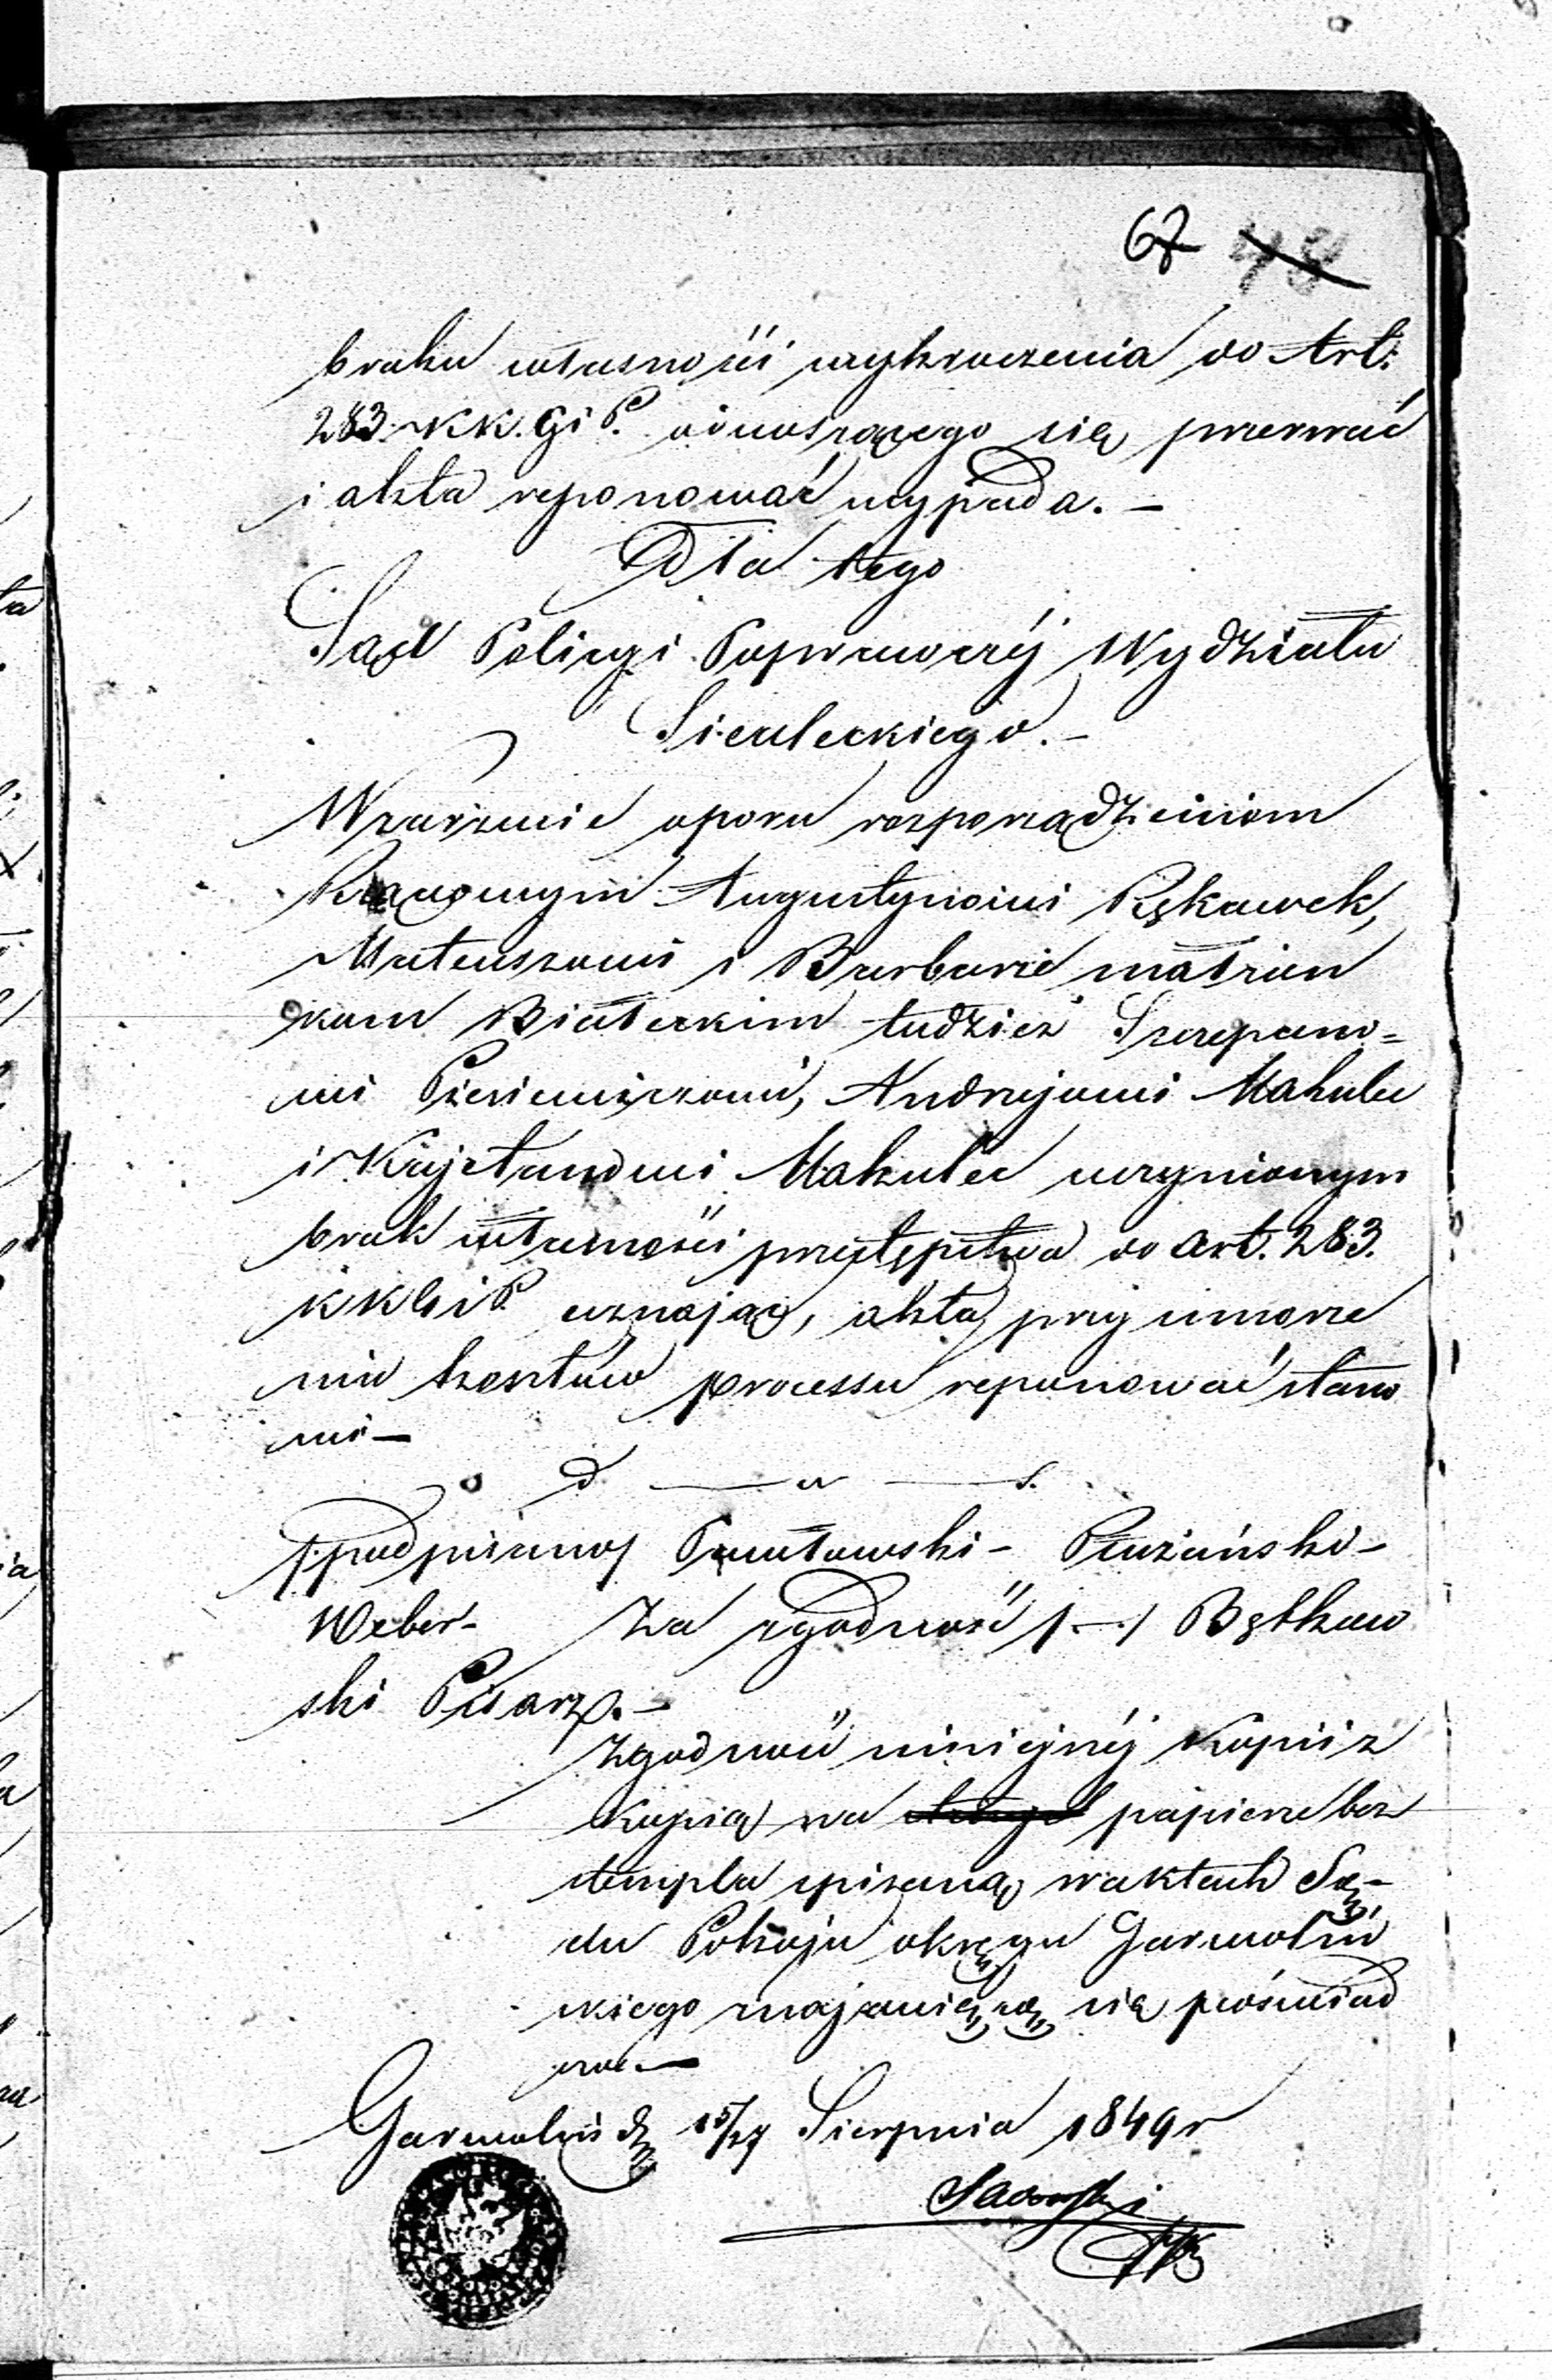 67 48
braku własności wykroczenia do Art:
283 KK. G i P. odnoszącego się przerwać
i akta reponować wypada. –
Dla tego
Sąd Policyi Poprawczéj Wydziału
Siedleckiego. –
W zarzucie oporu rozporządzeniom
Rządowym Augustynowi Rękawek,
Mateuszowi i Barbarze małżon
kom Białeckim tudzież Szczepano=
wi Andrzejowi Makulec
i Kajetanowi Makulec uczynionym
brak własności przestępstwa do art. 283.
KKG i P. uznając, akta przy umorze
niu kosztów processu reponować stano
wi –
d — u — s.
/:podpisano/ Prużański –
Weber – Za zgodność /—/ Bętkow
ski Pisarz. –
Zgodność niniejszéj Kopii z
Kopią na papierze bez
stempla spisaną w aktach Są-
du Pokoju okręgu Garwoliń
skiego znajdującą się poświad
cza. –
Garwolin d. 15/27 Sierpnia 1849 r